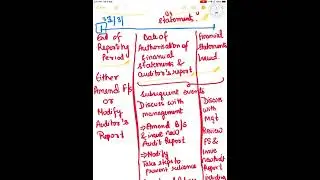 31/3/
Statement."
End of
Reporting
Period
Date of
Authorisation of
financial
statements &
auditor's report
financial
Statements
Issued
Either
Amend F/S
or
Modify
Auditor's
Report
Subsequent events
Discuss with
management
→ Amend
& issue new
Audit Report
→ Modify
Take steps to
prevent reliance
Discuss
with
Mgt
Review
FS &
issue
Report